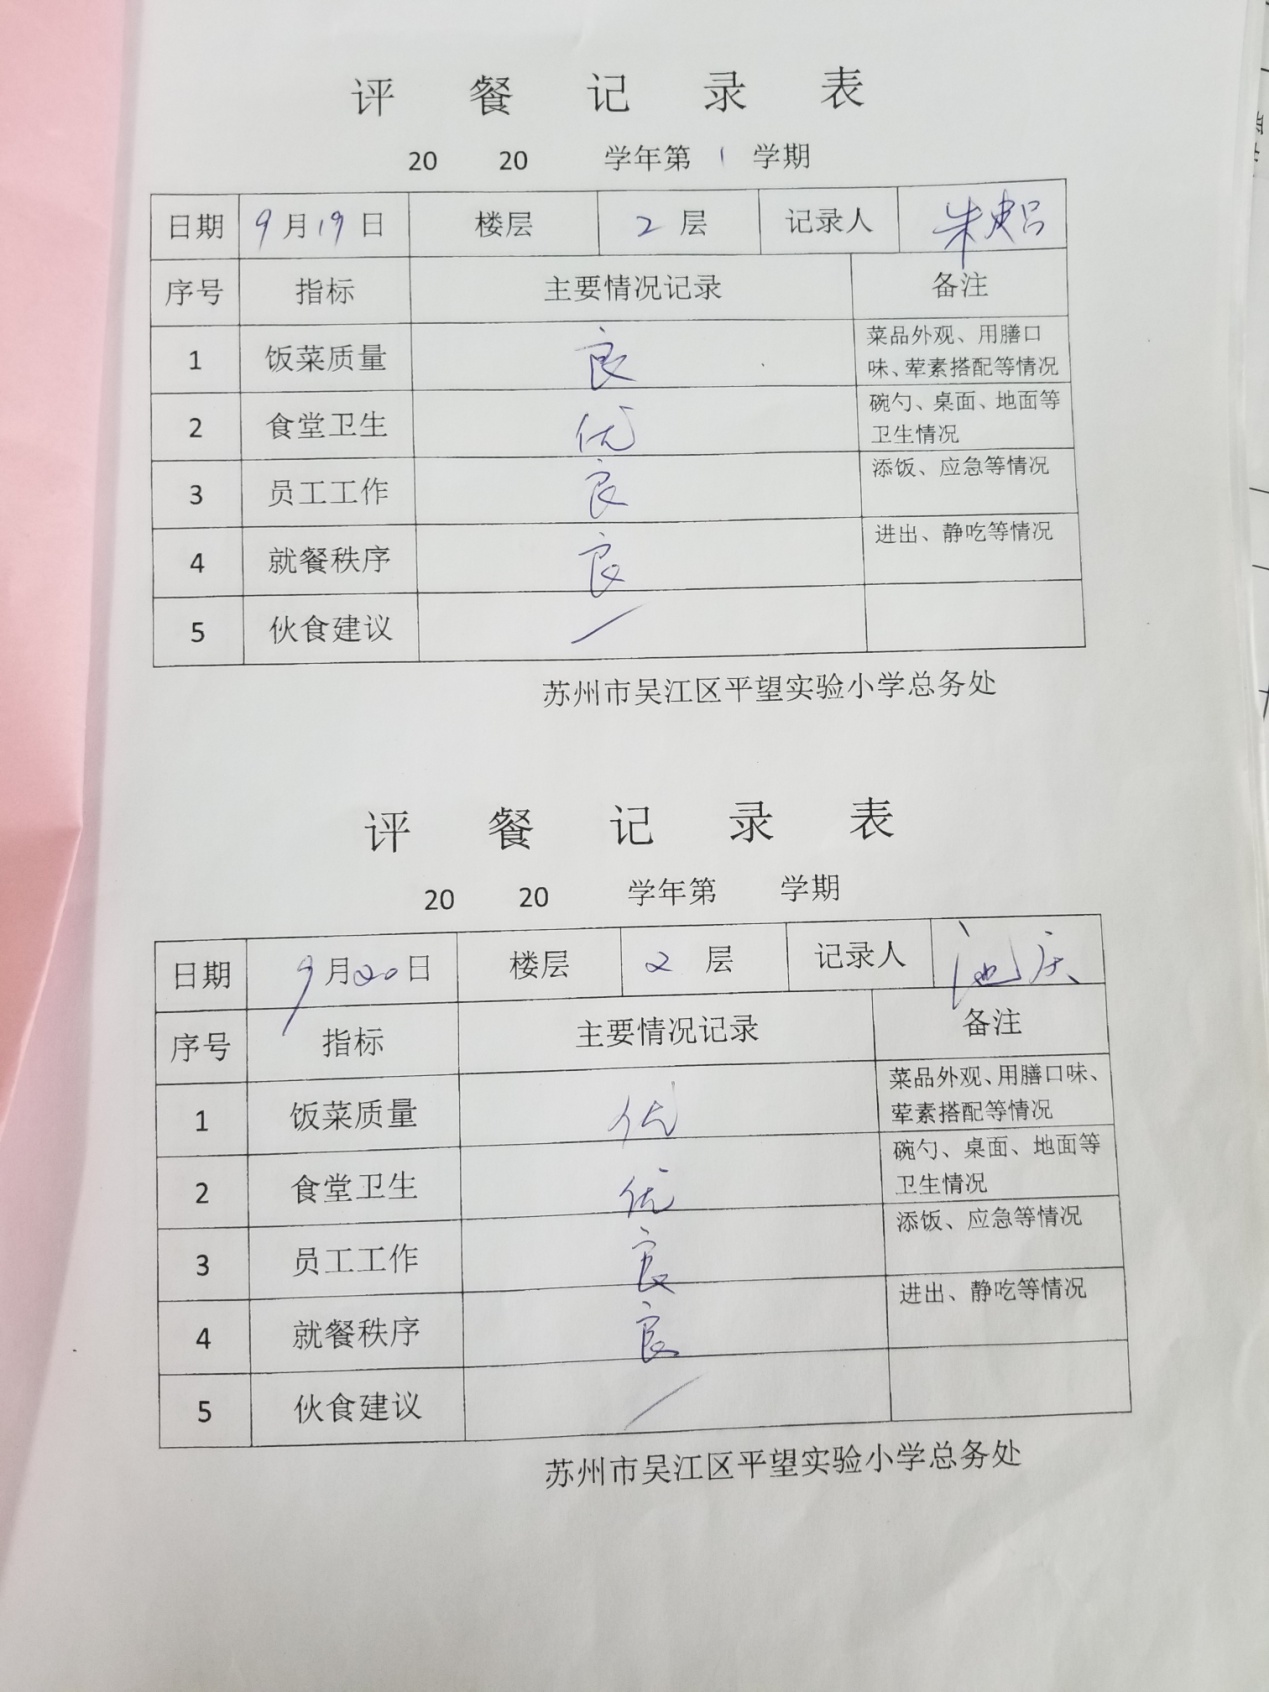 评 餐 记 录 表
20 20 学年第 1 学期
日期 9月19日 楼层 2 层 记录人 朱
序号 指标 主要情况记录 备注
1 饭菜质量 良 菜品外观、用膳口
味、荤素搭配等情况
2 食堂卫生 优 碗勺、桌面、地面等
卫生情况
3 员工工作 良 添饭、应急等情况
4 就餐秩序 良 进出、静吃等情况
5 伙食建议 /
苏州市吴江区平望实验小学总务处
评 餐 记 录 表
20 20 学年第 学期
日期 9月20日 楼层 2 层 记录人 池庆
序号 指标 主要情况记录 备注
1 饭菜质量 优 菜品外观、用膳口味、
荤素搭配等情况
2 食堂卫生 优 碗勺、桌面、地面等
卫生情况
3 员工工作 良 添饭、应急等情况
4 就餐秩序 良 进出、静吃等情况
5 伙食建议 /
苏州市吴江区平望实验小学总务处